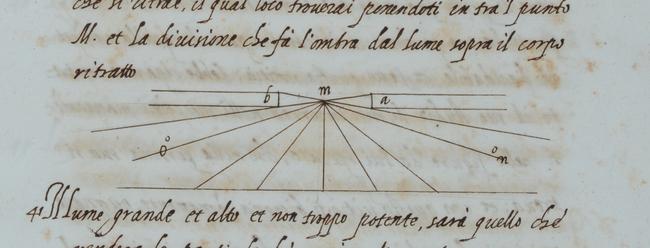 che si ritrae, il qual loco troverai ponendoti in tra 'l punto
M. et la divisione che fà l'ombra dal lume sopra il corpo
ritratto
b m a
o n
4. Il lume grande et alto et non troppo potente, sarà quello che